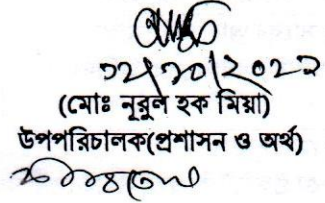 ১২/১০/২০২২
(মোঃ নূরুল হক মিয়া)
উপপরিচালক(প্রশাসন ও অর্থ)